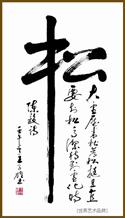 松
大雪壓青松青松挺且直
要知松高潔待到雪化時
陳毅詩
[世界艺术品牌]